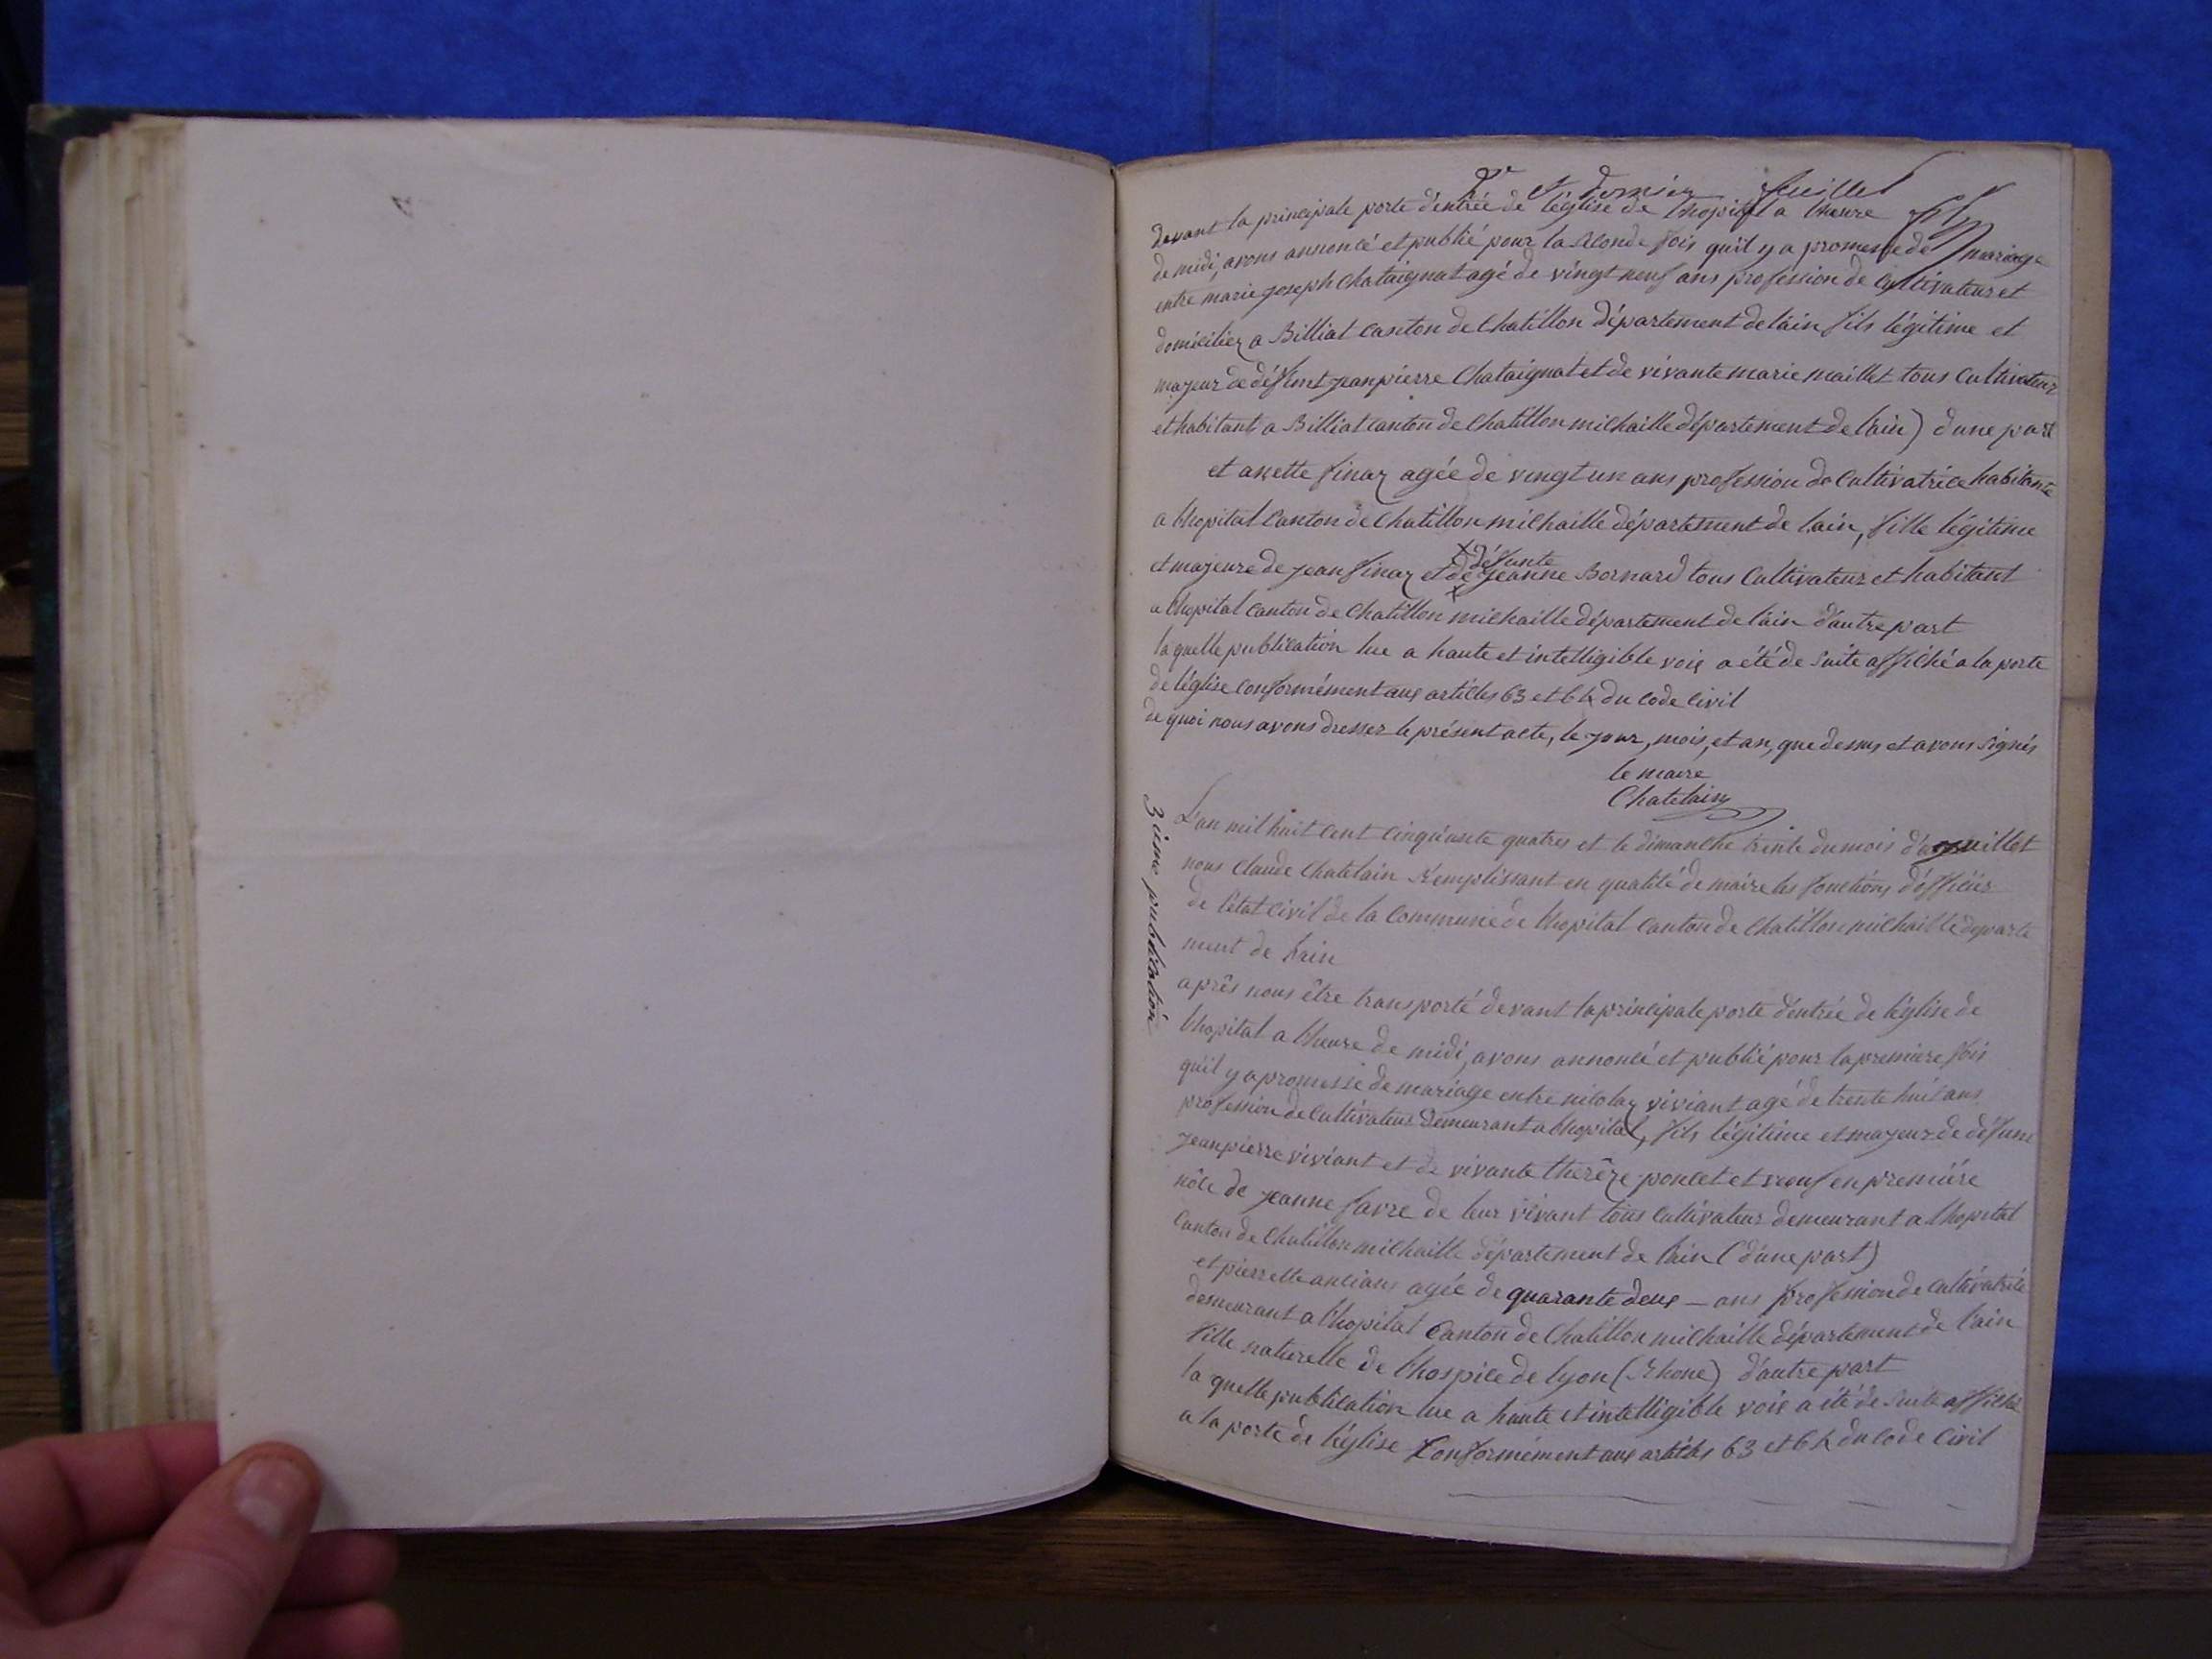 et dernier feuillet
devant la principale porte d'entrée de l'église de lhopital a lheure
de midi, avons annoncé et publié pour la seconde fois qu'il y a promesse de mariage
entre marie joseph Chataignat agé de vingt neuf ans profession de Cultivateur et
domicilier a Billiat canton de Chatillon département de lain fils légitime et
majeur de défunt jean pierre Chataignat et de vivante marie maillet tous Cultivateur
et habitant a Billiat canton de Chatillon michaille département de lain) d'une part
et anette finaz agée de vingt un ans profession de Cultivatrice habitante
a lhopital Canton de Chatillon michaille département de lain, fille légitime
et majeure de jean finaz et de défunte jeanne Bornard tous Cultivateur et habitant
a lhopital canton de Chatillon michaille département de lain d'autre part
la quelle publication lue a haute et intelligible voix a été de suite affiché a la porte
de léglise conformément aux articles 63 et 64 du code civil
de quoi nous avons dresser le présent acte, le jour, mois, et an, que dessus et avons signés
le maire
Chatelain
3ième publication
L'an mil huit cent cinquante quatres et le dimanche trente du mois juillet
nous Claude Chatelain Remplissant en qualité de maire les fonctions d'officier
de l'état civil de la Commune de lhopital canton de Chatillon michaille départe
ment de lain
après nous être transporté devant la principale porte d'entrée de léglise de
lhopital a lheure de midi, avons annoncé et publié pour la premiere fois
qu'il y a promesse de mariage entre nicolaz viviant agé de trente huit ans
profession de Cultivateur demeurant a lhopital, fils légitime et majeur de défunt
jean pierre viviant et de vivante therèze poncet et veuf en première
nôce de jeanne favre de leur vivant tous cultivateur demeurant a lhopital
Canton de Chatillon michaille département de lain (d'une part)
et pierrette ancians agée de quarante deux — ans profession de cultivatrice
demeurant a lhopital Canton de Chatillon michaille département de lain
fille naturelle de lhospice de lyon (Rhone) d'autre part
la quelle publication lue a haute et intelligible voix a été de suite affiché
a la porte de léglise Conformément aux articles 63 et 64 du Code Civil